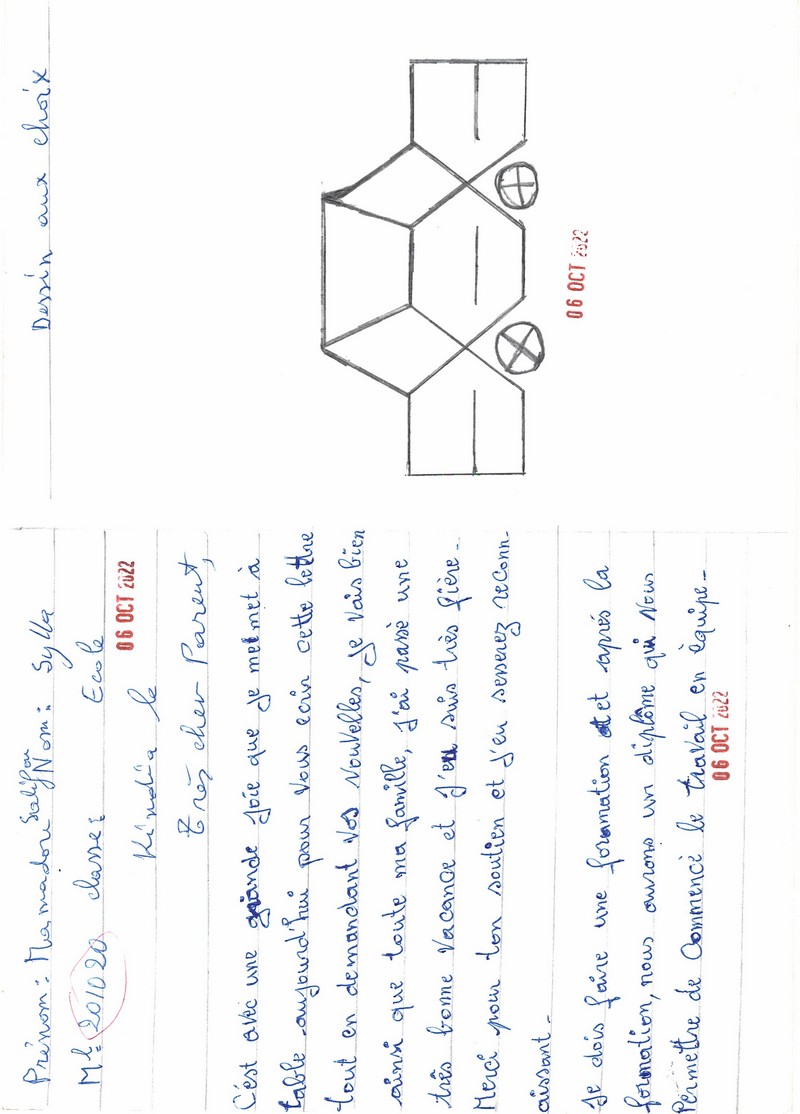 Prénom: Mamadou Salifou Nom: Sylla
Mle: 201020 classe: Ecole
06 OCT 2022
Kindia le
Très cher Parent,
C'est avec une grande joie que je me met à
table aujourd'hui pour vous écrir cette lettre
tout en demandant vos Nouvelles, je vais bien
ainsi que toute ma famille, j'ai passé une
très bonne Vacance et j'en suis très fière.
Merci pour ton soutien et j'en sesserez reconn-
aissant.
Je dois faire une formation et après la
formation, nous aurons un diplôme qui Nous
Permettre de Commencé le travail en équipe.
06 OCT 2022
Dessin aux choix
06 OCT 2022